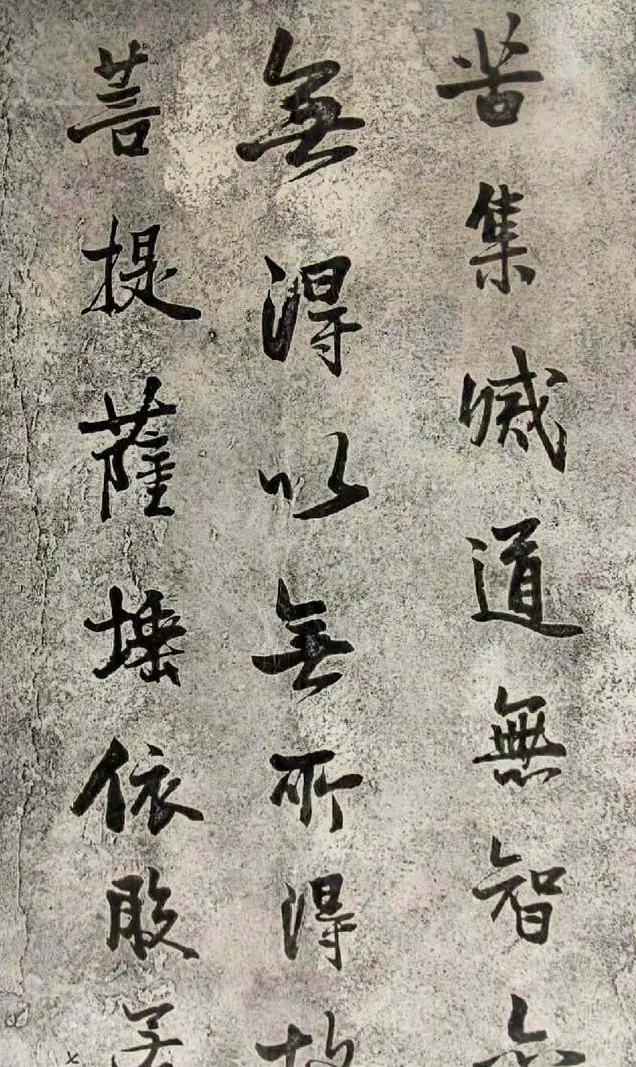 苦集滅道無智亦
無得以無所得故
菩提薩埵依般若